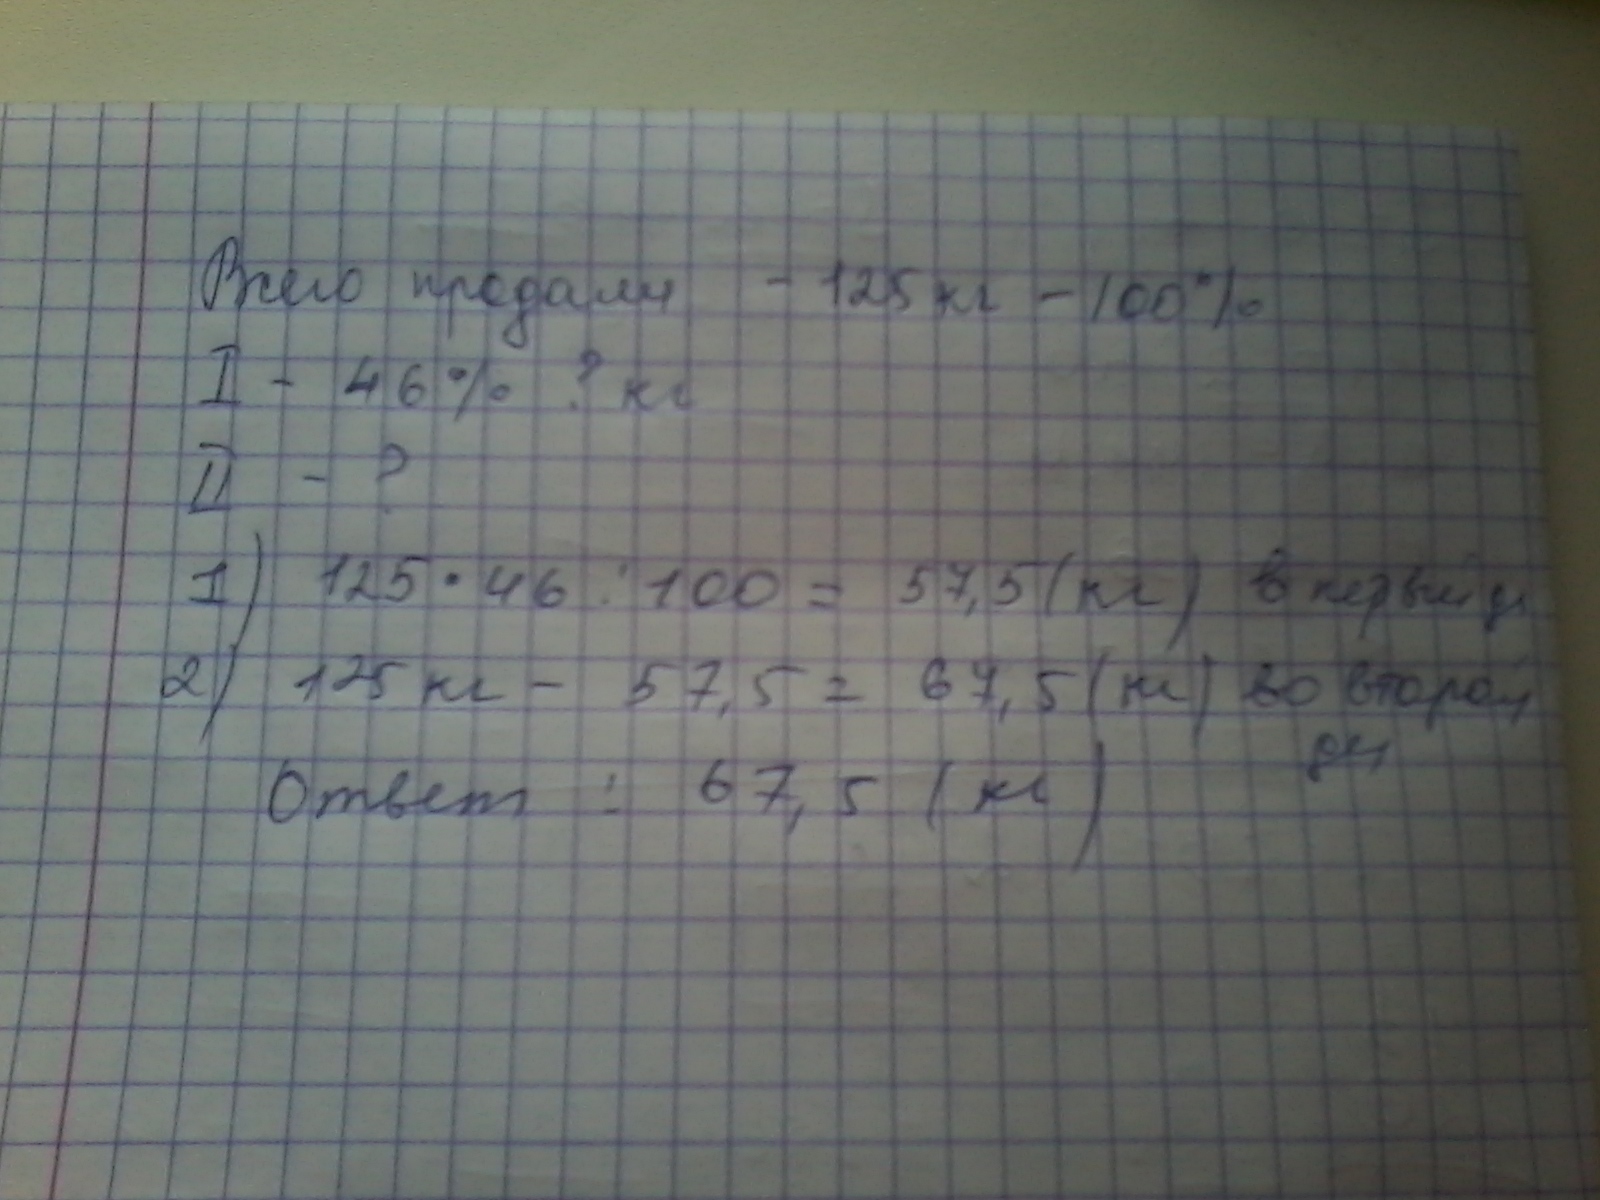 Всего продали - 125 кг - 100%
I - 46% ? кг
II - ?
1) 125 · 46 : 100 = 57,5 (кг) в первый д
2) 125 кг - 57,5 = 67,5 (кг) во второй
дн
Ответ : 67,5 (кг)